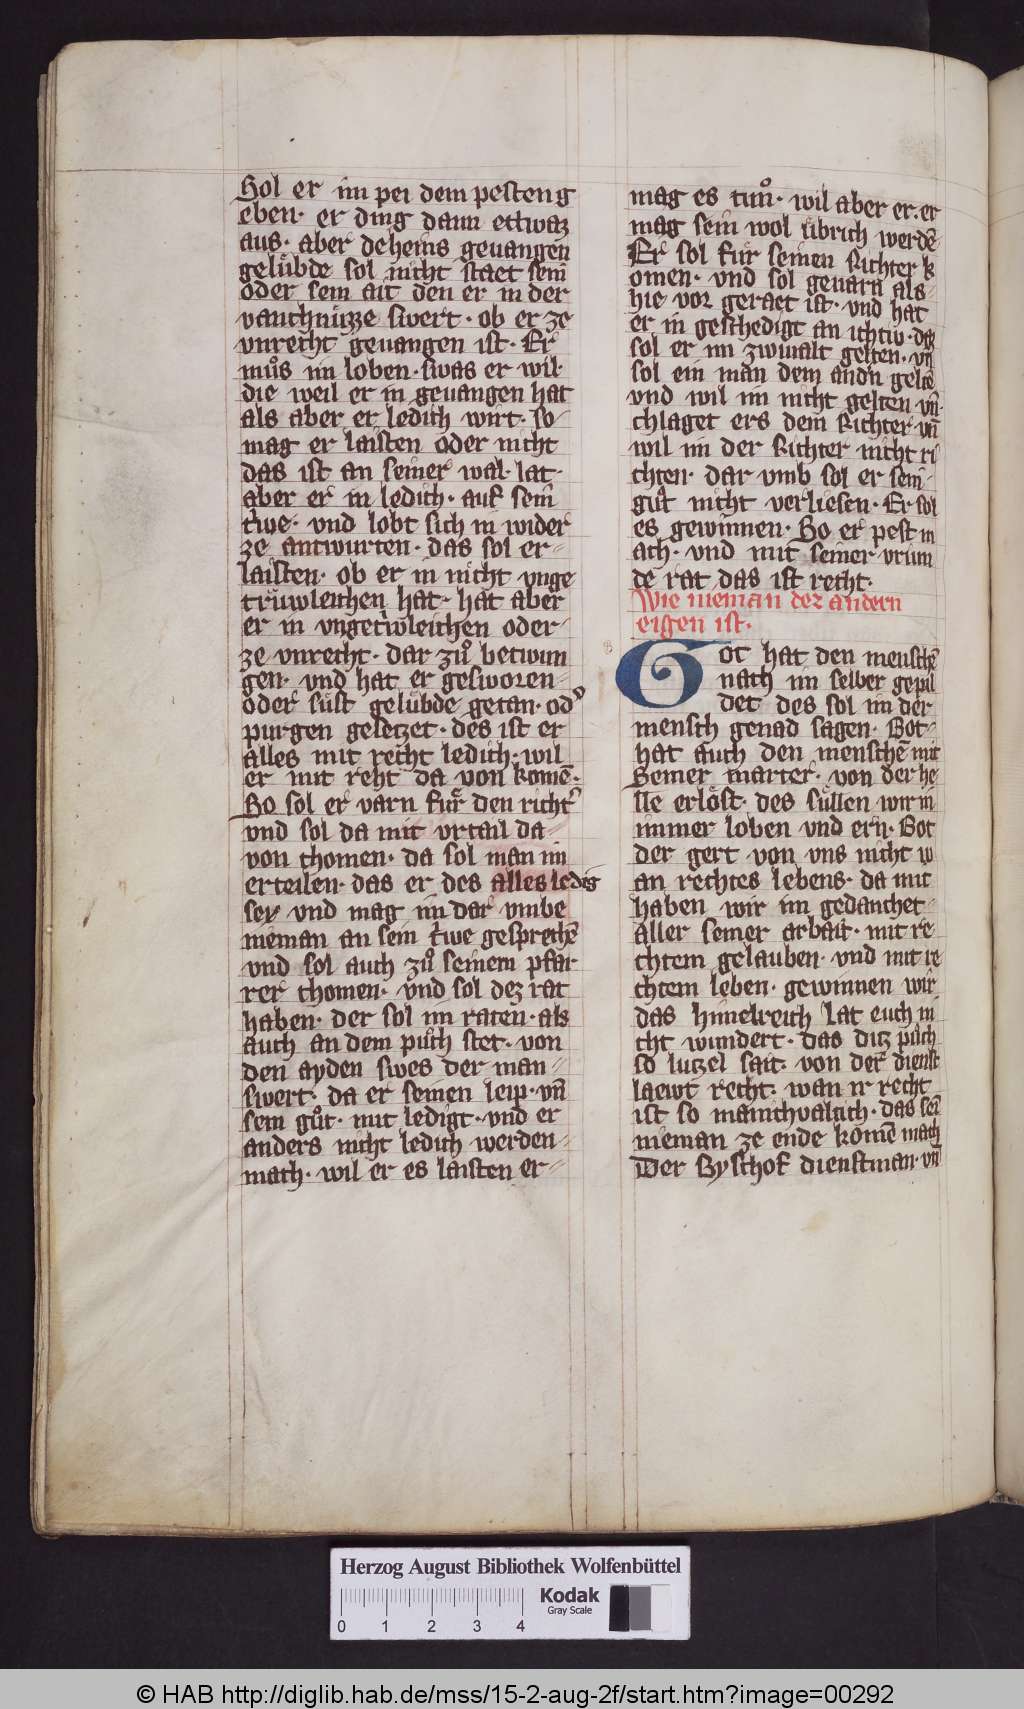 Sol er im pei dem pesten g
eben· er ding dann ettwaz
aus· aber deheins geuangen
gelübde sol nicht staet sein
oder sein ait den er in der
vanchnüzze swert· ob er ze
vnrecht geuangen ist· Er
můs im loben· swas er wil·
die weil er in geuangen hat
als aber er ledich wirt· so
mag er laisten oder nicht
das ist an seiner wal· lat·
aber er in ledich· auf sein
trwe· vnd lobt sich in wider
ze antwurten· das sol er
laisten· ob er in nicht vnge
trüwleichen hat· hat aber
er in vngetrwleichen oder
ze vnrecht· dar zů betwun
gen· vnd hat er gesworen
oder süst gelübde getan· od
purgen gesetzet· des ist er
alles mit recht ledich· wil
er mit reht da von komē·
So sol er varn für den richt
vnd sol da mit vrtail da
von chomen· da sol man im
erteilen· das er des alles ledig
sey vnd mag im dar vmbe
nieman an sein trwe gesprechē
vnd sol auch zů seinem pfar
rer chomen· vnd sol dez rat
haben· der sol im raten· als
auch an dem půch stet· von
den ayden swes der man
swert· da er seinen leip· vn̄
sein gůt· mit ledigt· vnd er
anders nicht ledich werden
mach· wil er es laisten er
mag es tuͦn· wil aber er· er
mag sein wol übrich werdē
Er sol für seinen Richter k
omen· vnd sol geuarn als
hie vor geraet ist· vnd hat
er in geschedigt an ichtiv· daz
sol er im zwiualt gelten· vn̄
sol ein man dem andn geltē
vnd wil im nicht gelten vn̄
chlaget ers dem Richter vn̄
wil im der Richter nicht ri
chten· dar vmb sol er sein
gůt nicht verliesen· Er sol
es gewinnen· So er pest m
ach· vnd mit seiner vrun
de rat das ist recht·
Wie nieman der andern
eigen ist·
Got hat den menschē
nach im selber gepil
det des sol im der
mensch genad sagen· Got
hat auch den menschē mit
Seiner marter· von der he
lle erlöst· des süllen wir in
immer loben vnd ern· Got
der gert von vns nicht w
an rechtes lebens· da mit
haben wir im gedanchet
aller seiner arbait· mit re
chtem gelauben· vnd mit re
chtem leben· gewinnen wir
das himelreich Lat euch ni
cht wundert· das ditz půch
so lutzel sait· von der dienst
laewt recht· wan ir recht
ist so manichualtich· das sein
nieman ze ende komē mach
Der Byschof dienstman· vn̄
Herzog August Bibliothek Wolfenbüttel
0 1 2 3 4
Kodak
Gray Scale
© HAB http://diglib.hab.de/mss/15-2-aug-2f/start.htm?image=00292